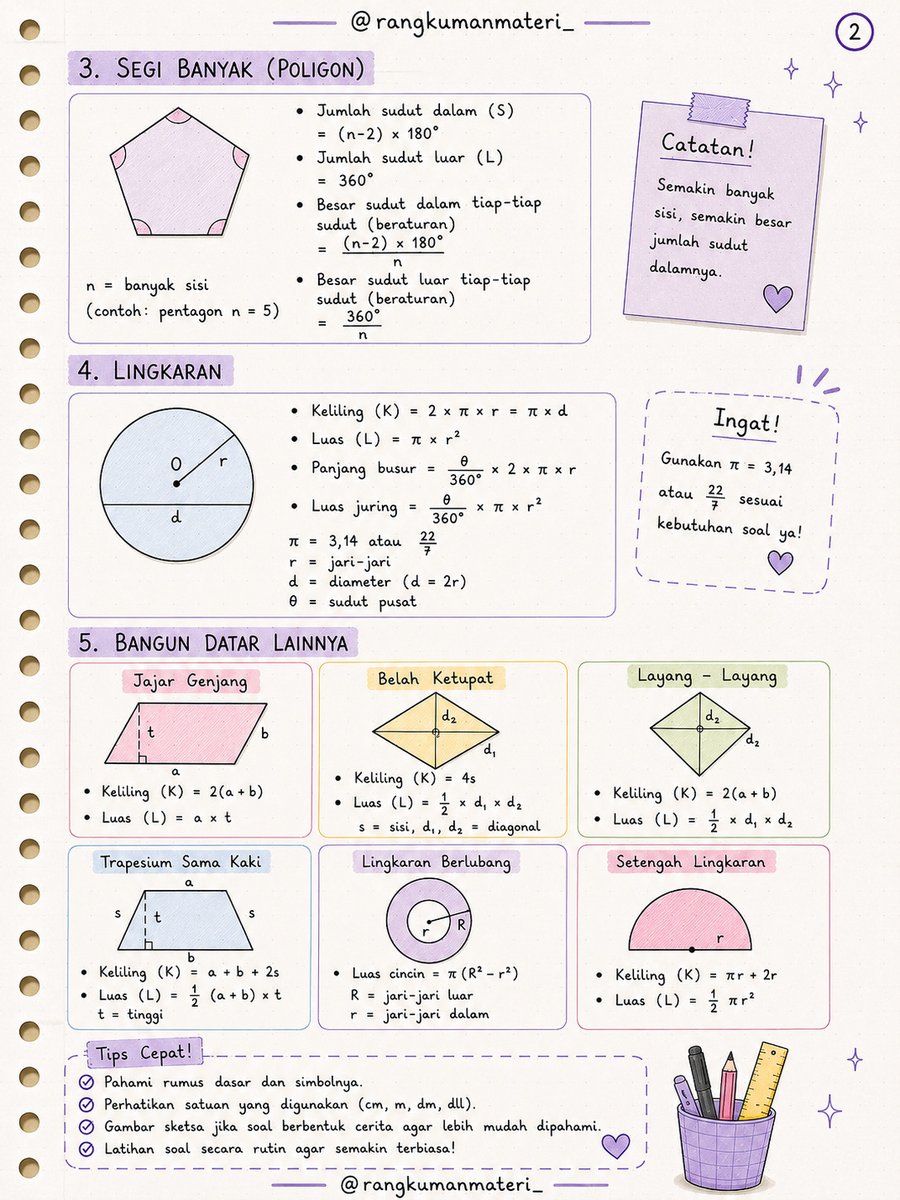 @rangkumanmateri_
2
3. SEGI BANYAK (POLIGON)
• Jumlah sudut dalam (S)
= (n-2) × 180°
• Jumlah sudut luar (L)
= 360°
• Besar sudut dalam tiap-tiap
sudut (beraturan)
= (n-2) × 180° / n
• Besar sudut luar tiap-tiap
sudut (beraturan)
= 360° / n
n = banyak sisi
(contoh: pentagon n = 5)
Catatan!
Semakin banyak
sisi, semakin besar
jumlah sudut
dalamnya.
4. LINGKARAN
O
r
d
• Keliling (K) = 2 × π × r = π × d
• Luas (L) = π × r²
• Panjang busur = θ/360° × 2 × π × r
• Luas juring = θ/360° × π × r²
π = 3,14 atau 22/7
r = jari-jari
d = diameter (d = 2r)
θ = sudut pusat
Ingat!
Gunakan π = 3,14
atau 22/7 sesuai
kebutuhan soal ya!
5. BANGUN DATAR LAINNYA
Jajar Genjang
t
b
a
• Keliling (K) = 2(a + b)
• Luas (L) = a × t
Belah Ketupat
d₂
d₁
• Keliling (K) = 4s
• Luas (L) = 1/2 × d₁ × d₂
s = sisi, d₁, d₂ = diagonal
Layang - Layang
d₂
d₂
• Keliling (K) = 2(a + b)
• Luas (L) = 1/2 × d₁ × d₂
Trapesium Sama Kaki
a
s
t
s
b
• Keliling (K) = a + b + 2s
• Luas (L) = 1/2 (a + b) × t
t = tinggi
Lingkaran Berlubang
r
R
• Luas cincin = π (R² - r²)
R = jari-jari luar
r = jari-jari dalam
Setengah Lingkaran
r
• Keliling (K) = πr + 2r
• Luas (L) = 1/2 πr²
Tips Cepat!
Pahami rumus dasar dan simbolnya.
Perhatikan satuan yang digunakan (cm, m, dm, dll).
Gambar sketsa jika soal berbentuk cerita agar lebih mudah dipahami.
Latihan soal secara rutin agar semakin terbiasa!
@rangkumanmateri_